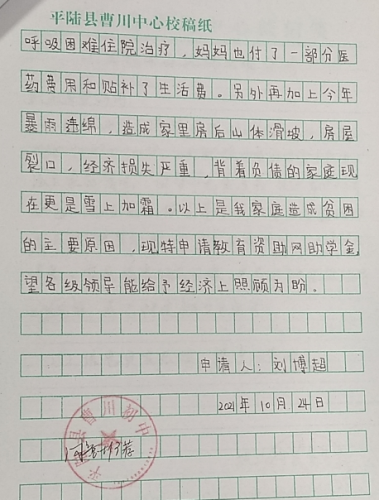 平陆县曹川中心校稿纸
呼吸困难住院治疗，妈妈也付了一部分医
药费用和贴补了生活费。另外再加上今年
暴雨连绵，造成家里房后山体滑坡，房屋
裂口，经济损失严重，背着负债的家庭现
在更是雪上加霜。以上是我家庭造成贫困
的主要原因，现特申请教育资助网助学金，
望各级领导能给予经济上照顾为盼。
申请人：刘博超
2021年10月24日
平陆县曹川初中